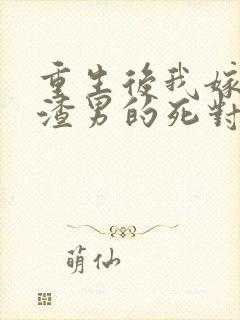 重生後我嫁
渣男的死對
萌仙